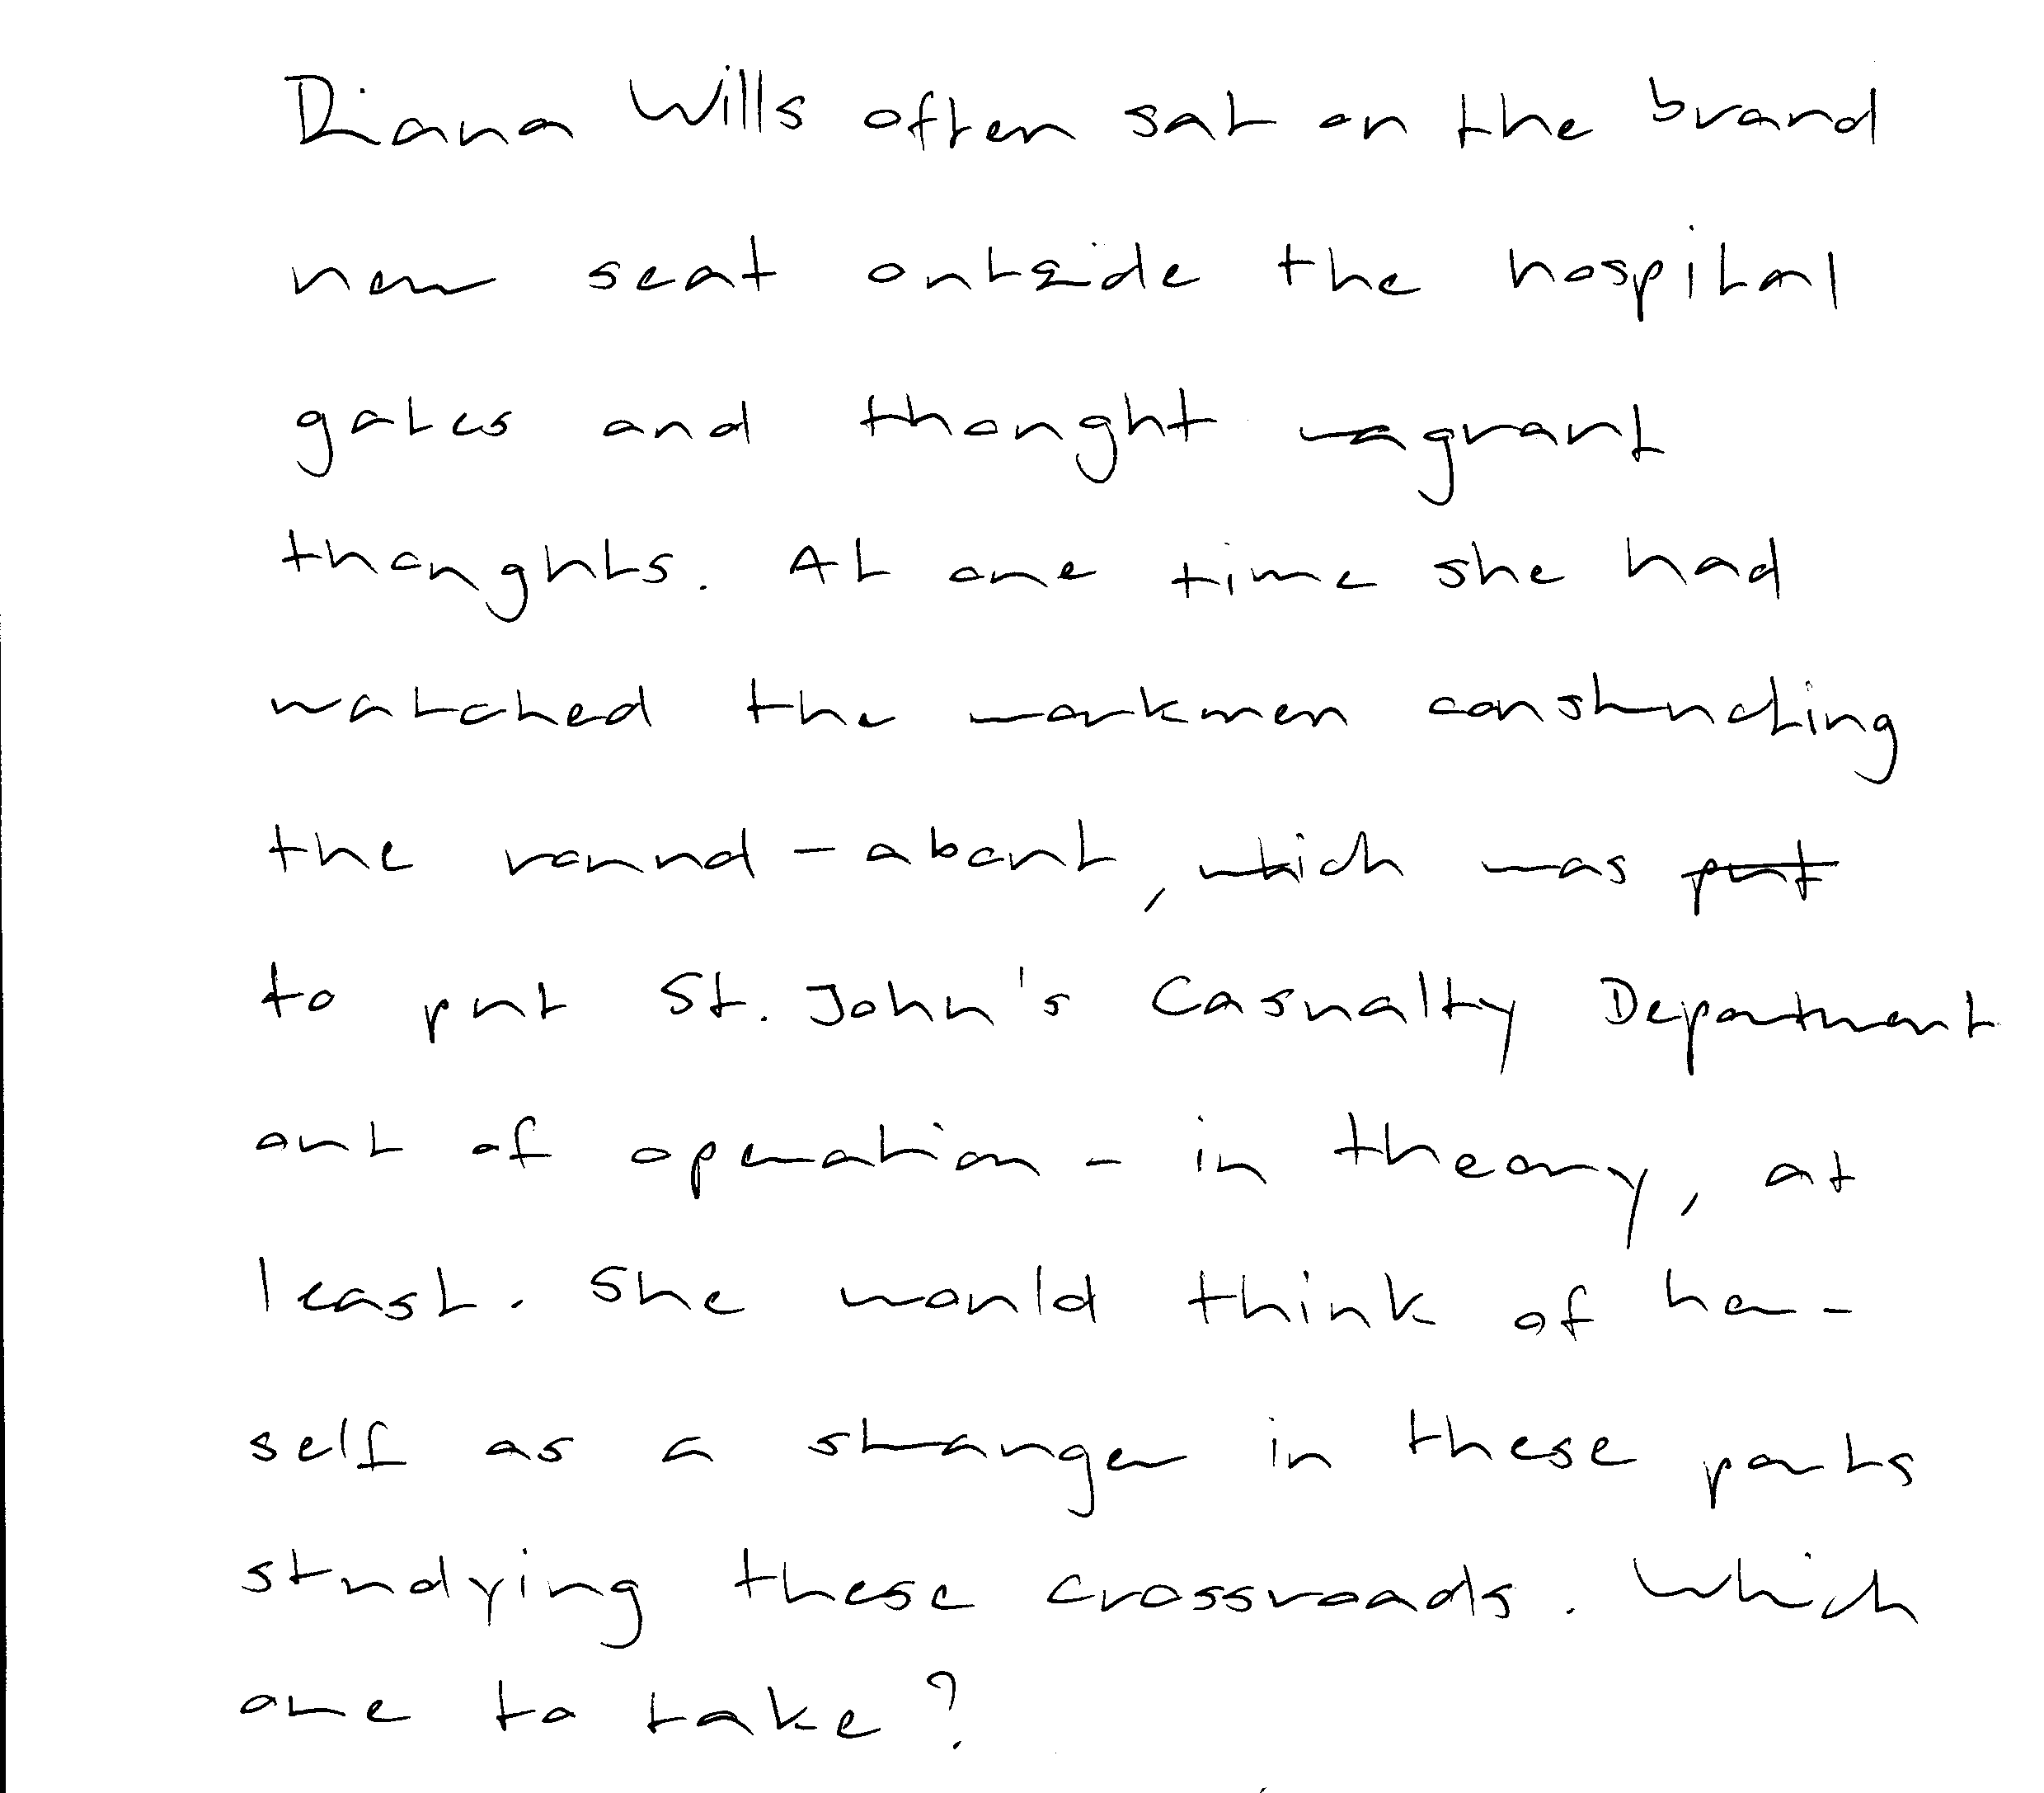 Diana Wills often sat on the brand
new seat outside the hospital
gates and thought vagrant
thoughts. At one time she had
watched the workmen constructing
the round-about, which was put
to put St. John's Casualty Department
out of operation - in theory, at
least. She would think of her-
self as a stranger in these parts
studying these crossroads. Which
one to take?